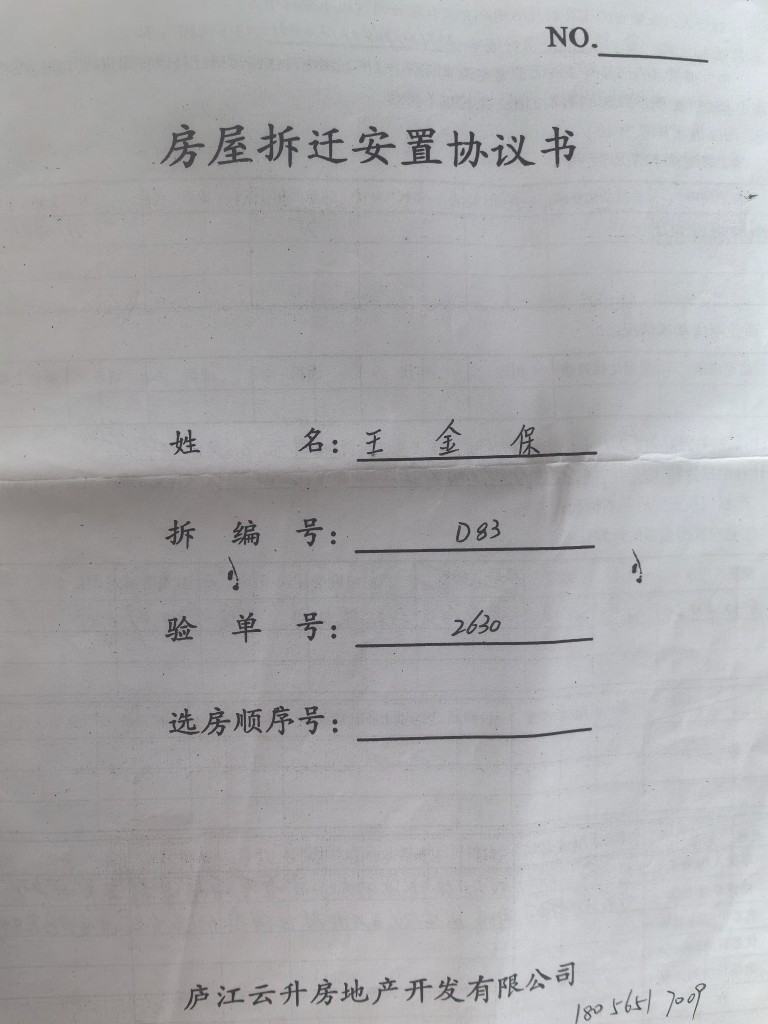 NO.
房屋拆迁安置协议书
姓 名：王 金 保
拆 编 号：D83
验 单 号：2630
选房顺序号：
庐江云升房地产开发有限公司
180 5651 7009